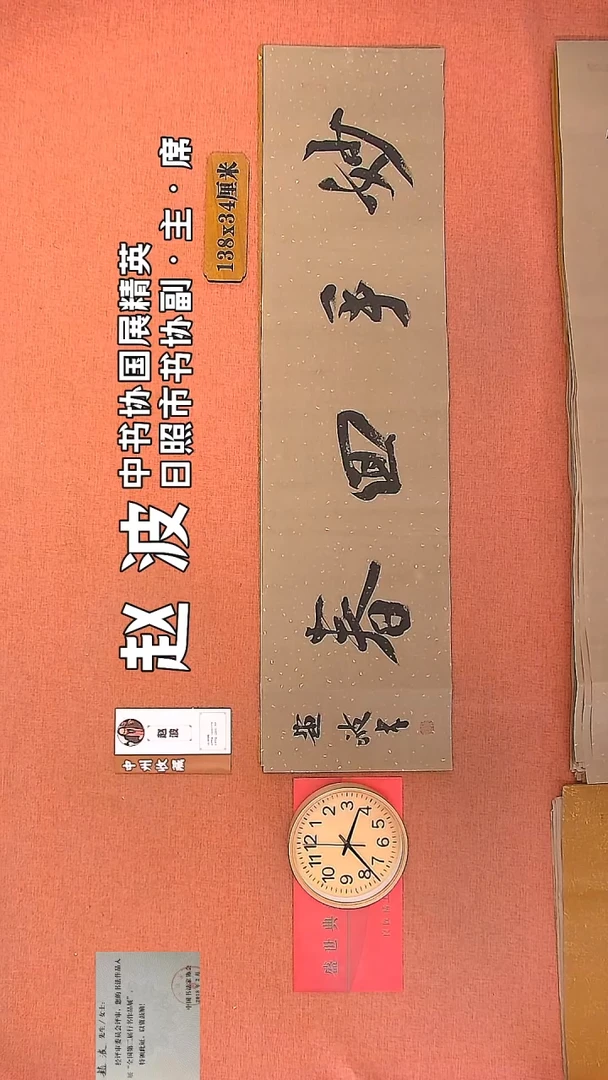 赵波
中书协国展精英
日照市书协副·主·席
138x34厘米
妙手回春
赵波书
赵波
中州收藏
盛世典
12
1
2
3
4
5
6
7
8
9
10
11
赵波 先生/女士:
经评审委员会评审,您的书法作品入
展“全国第二届行书作品展”,
特颁此证,以资鼓励!
中国书法家协会